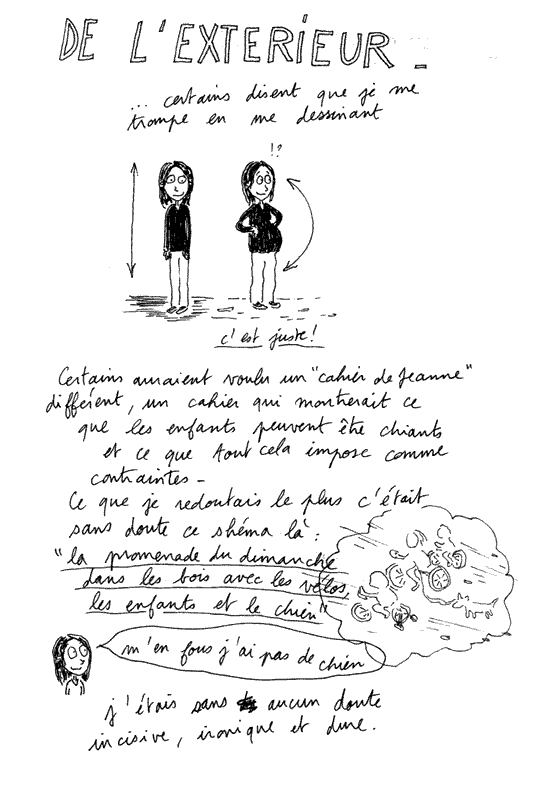 DE L'EXTERIEUR _
... certains disent que je me
trompe en me dessinant
!?
c'est juste!
Certains auraient voulu un "cahier de Jeanne"
différent, un cahier qui montrerait ce
que les enfants peuvent être chiants
et ce que tout cela impose comme
contraintes -
Ce que je redoutais le plus c'était
sans doute ce shéma là :
"la promenade du dimanche
dans les bois avec les vélos,
les enfants et le chien"
m'en fous j'ai pas de chien
j'étais sans aucun doute
incisive, ironique et dure.